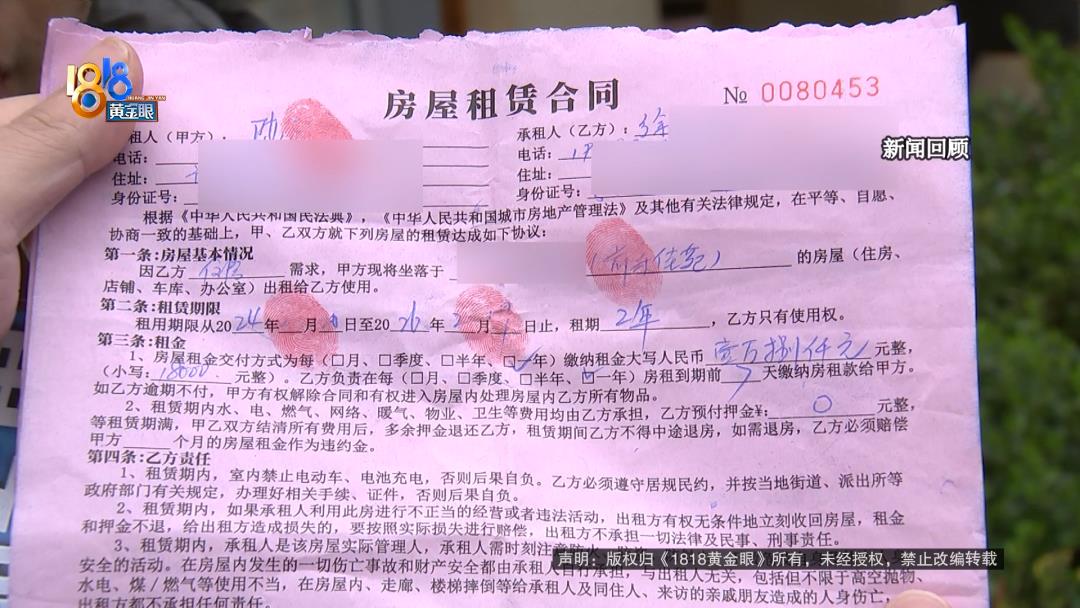 1818
黄金眼
HUANG JIN YAN
房屋租赁合同
№ 0080453
租人（甲方）：
承租人（乙方）：徐
新闻回顾
电话：
电话：
住址：
住址：
身份证号：
身份证号：
根据《中华人民共和国民法典》，《中华人民共和国城市房地产管理法》及其他有关法律规定，在平等、自愿、
协商一致的基础上，甲、乙双方就下列房屋的租赁达成如下协议：
第一条:房屋基本情况
因乙方 需求，甲方现将坐落于 的房屋（住房、
店铺、车库、办公室）出租给乙方使用。
第二条:租赁期限
租用期限从2024年 月 日至2026年2月 日止，租期2年，乙方只有使用权。
第三条:租金
1、房屋租金交付方式为每（□月、□季度、□半年、□一年）缴纳租金大写人民币壹万捌仟元元整，
（小写：18000元整）。乙方负责在每（□月、□季度、□半年、□一年）房租到期前 天缴纳房租款给甲方。
如乙方逾期不付，甲方有权解除合同和有权进入房屋内处理房屋内乙方所有物品。
2、租赁期内水、电、燃气、网络、暖气、物业、卫生等费用均由乙方承担，乙方预付押金¥：0元整，
等租赁期满，甲乙双方结清所有费用后，多余押金退还乙方，租赁期间乙方不得中途退房，如需退房，乙方必须赔偿
甲方 个月的房屋租金作为违约金。
第四条:乙方责任
1、租赁期内，室内禁止电动车、电池充电，否则后果自负。乙方必须遵守居规民约，并按当地街道、派出所等
政府部门有关规定，办理好相关手续、证件，否则后果自负。
2、租赁期内，如果承租人利用此房进行不正当的经营或者违法活动，出租方有权无条件地立刻收回房屋，租金
和押金不退，给出租方造成损失的，要按照实际损失进行赔偿，出租方不承担一切法律及民事、刑事责任。
3、租赁期内，承租人是该房屋实际管理人，承租人需时刻注意
声明：版权归《1818黄金眼》所有，未经授权，禁止改编转载
安全的活动。在房屋内发生的一切伤亡事故和财产安全都由承租人自行承担，与出租人无关，包括但不限于高空抛物、
水电、煤/燃气等使用不当，在房屋内、走廊、楼梯摔倒等给承租人及同住人、来访的亲戚朋友造成的人身伤亡，
出租方都不承担任何责任。